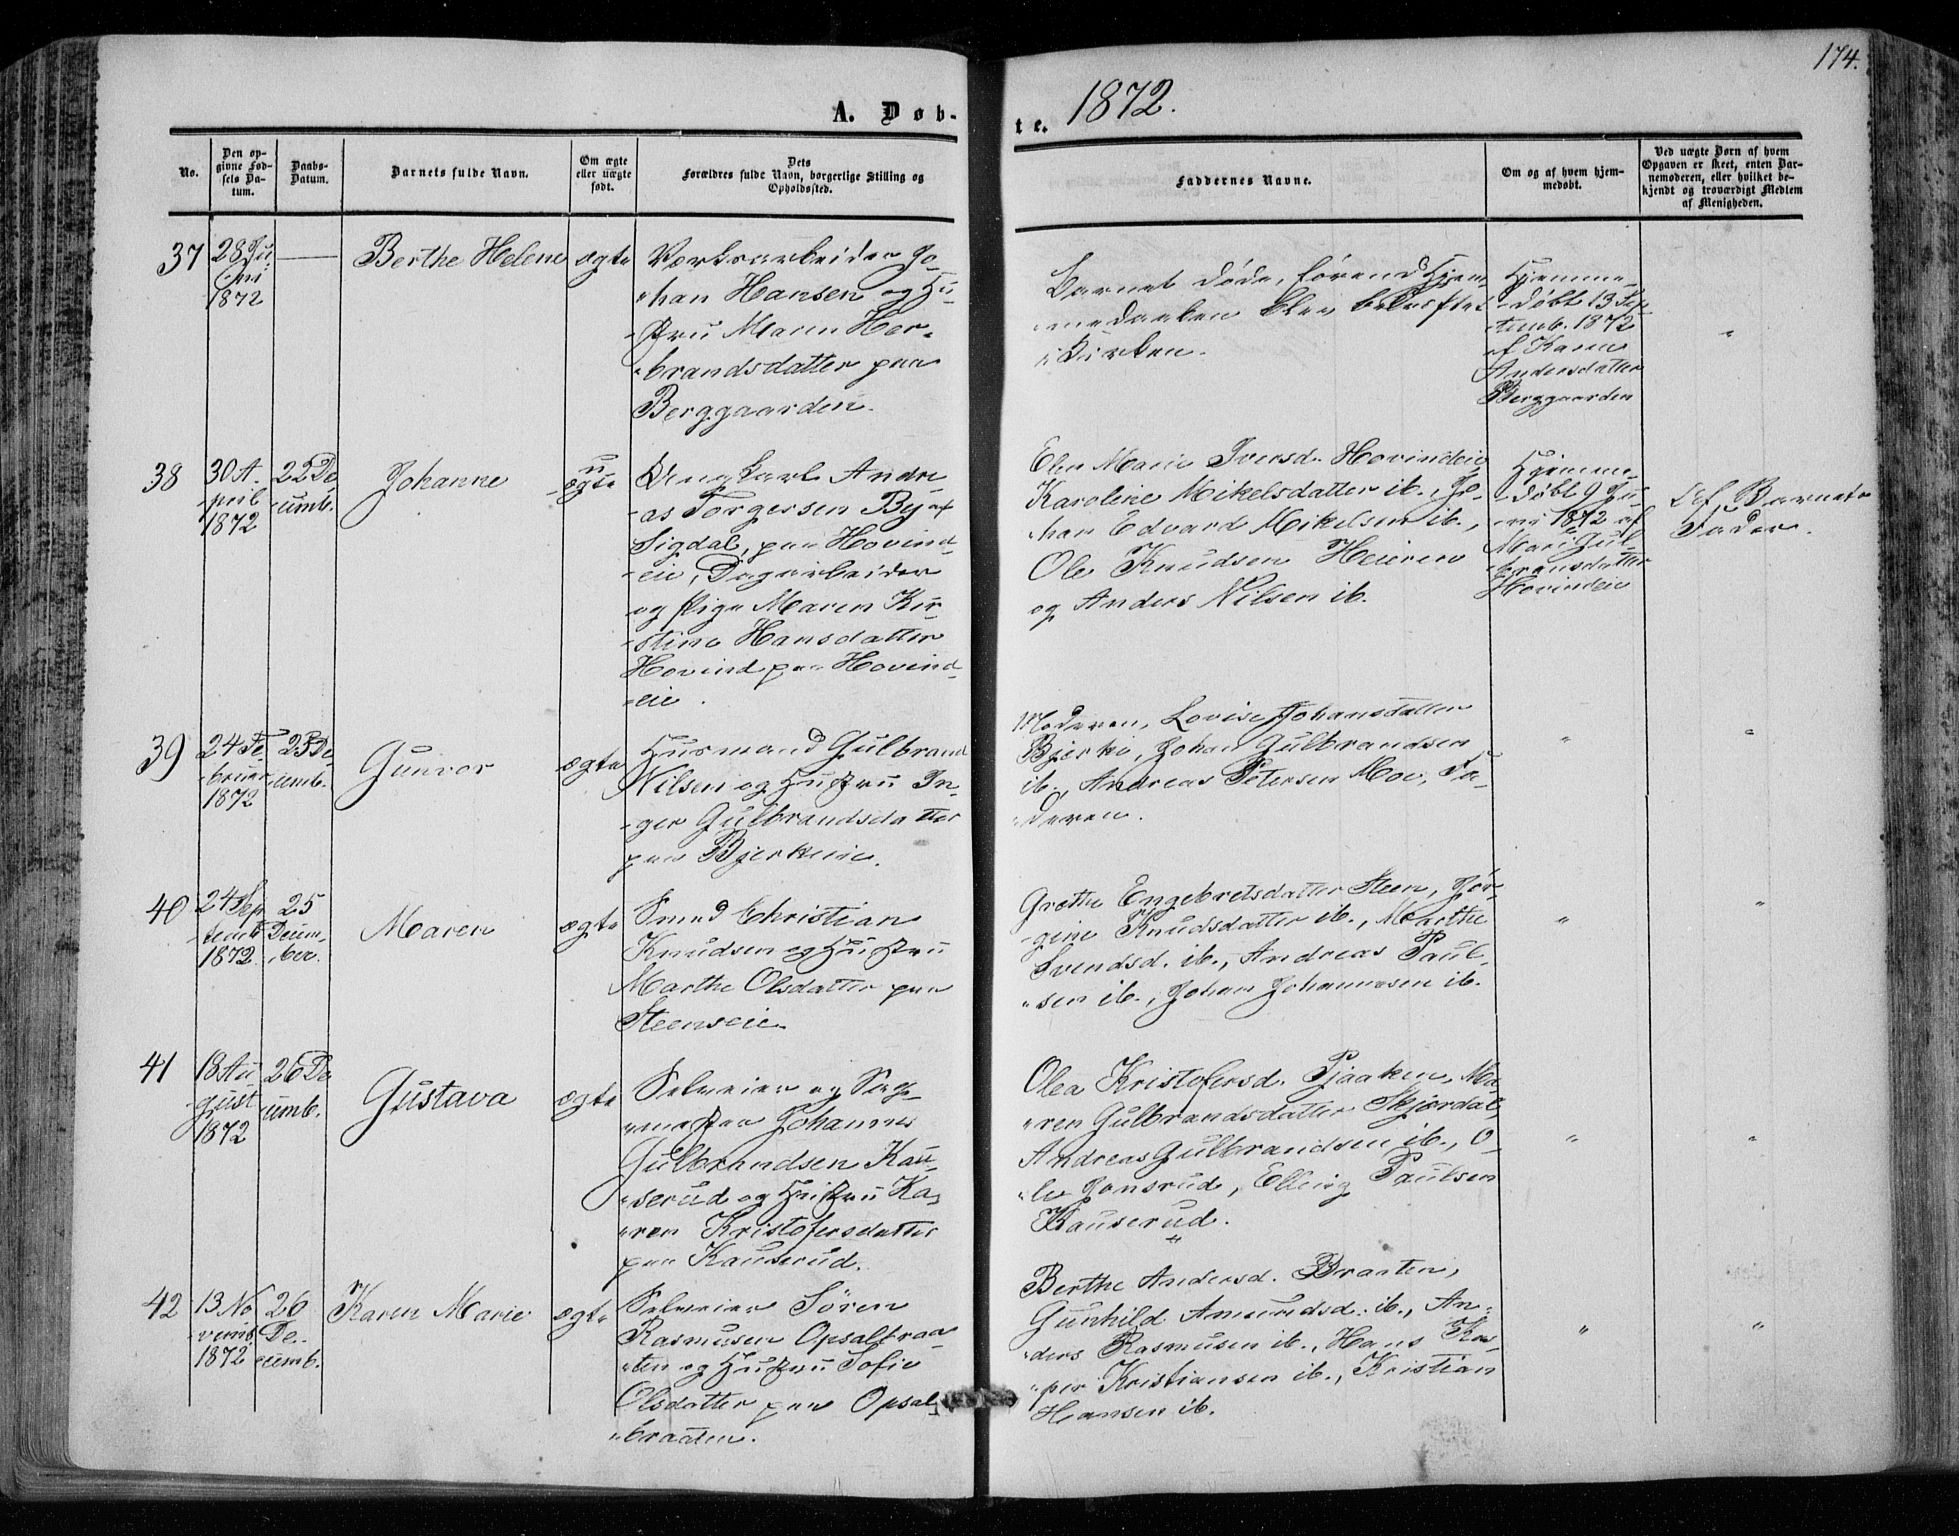 174.
A. Døb-
te. 1872.
No.
Den op-
givne Fød-
sels Da-
tum.
Daabs-
Datum.
Barnets fulde Navn.
Om ægte
eller uægte
født.
Dets
Forældres fulde Navn, borgerlige Stilling og
Opholdssted.
Faddernes Navne.
Om og af hvem hjem-
medøbt.
Ved uægte Børn af hvem
Opgaven er skeet, enten Bar-
nemoderen, eller hvilket be-
kjendt og troværdigt Medlem
af Menigheden.
37
28 Ju-
-ni
1872
—
Berthe Helene
ægte
Værksarbeider Jo-
-han Hansen og Hu-
-stru Maren Her-
-brandsdatter paa
Berggaarden.
Barnet døde, førend Hjem-
-medaaben blev bekræftet
i Kirken.
Hjemme-
-døbt 13 Sep-
-temb. 1872
af Karen
Andersdatter
Berggaarden
"
38
30 A-
-pril
1872
22 De-
-cemb.
Johanne
u-
-ægte
Ungkarl Andre-
-as Torgersen By af
Sigdal, paa Hovind-
-eie, Dagarbeider
og Pige Maren Kir-
-stine Hansdatter
Hovind paa Hovind-
-eie.
Elen Marie Iversd. Hovindeie,
Karoline Mikelsdatter ib., Jo-
-han Edvard Mikelsen ib.,
Ole Knudsen Heieren
og Anders Nilsen ib.
Hjemme-
-døbt 9 Ju-
-ni 1872 af
Mari Gul-
-bransdatter
Hovindeie
Af Barnets
Fader.
39
24 Fe-
-bruar
1872
25 De-
-cemb.
Gunvor
ægte
Husmand Gulbrand
Nilsen og Hustru In-
-ger Gulbrandsdatter
paa Bjerkeeie.
Moderen, Lovise Johansdatter
Bjerke, Johan Gulbrandsen
ib., Andreas Petersen Moe, Fa-
-deren.
"
"
40
24 Sep-
-temb
1872
25
Decem-
-ber.
Maren
ægte
Smed Christian
Knudsen og Hustru
Marthe Olsdatter paa
Steenseie
Grethe Engebretsdatter Steen, Jør-
-gine Knudsdatter ib., Marthe
Svendsd. ib., Andreas Paul-
-sen ib., Johan Johannesen ib.
"
"
41
18 Au-
-gust
1872
26 De-
-cemb.
Gustava
ægte
Selveier og Sag-
-mester Johannes
Gulbrandsen Kau-
-serud og Hustru Ka-
-ren Kristofersdatter
paa Kauserud.
Olea Kristofersd. Pjaaken, Ma-
-ren Gulbrandsdatter Skjørdal,
Andreas Gulbrandsen ib., O-
-le Jonsrud, Elling Paulsen
Kauserud.
"
"
"
42
13 No-
-vemb
1872
26
De-
-cemb.
Karen Marie
ægte
Selveier Sören
Rasmusen Opsalbraa-
-ten og Hustru Sofie
Olsdatter paa Opsal-
-braaten.
Berthe Andersd. Braaten,
Gunhild Amundsd. ib., An-
-ders Rasmusen ib., Hans Kas-
-per Kristiansen ib., Kristian
Hansen ib.
"
"